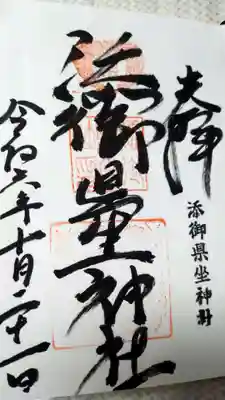 奉拝
添御県坐神社
添御縣坐神社
令和六年十月二十一日